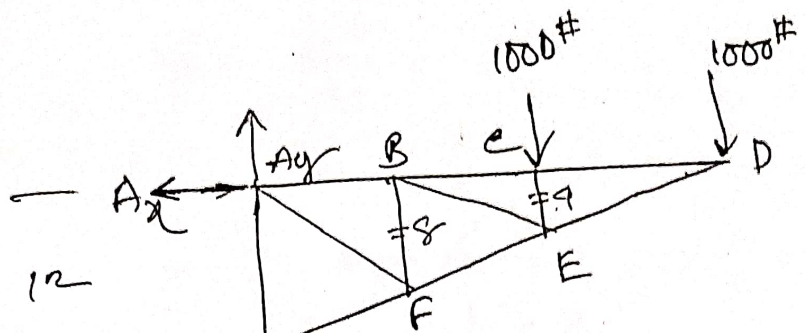 1000# 1000#
Ay B C D
Ax
=8 =4
12 E
F